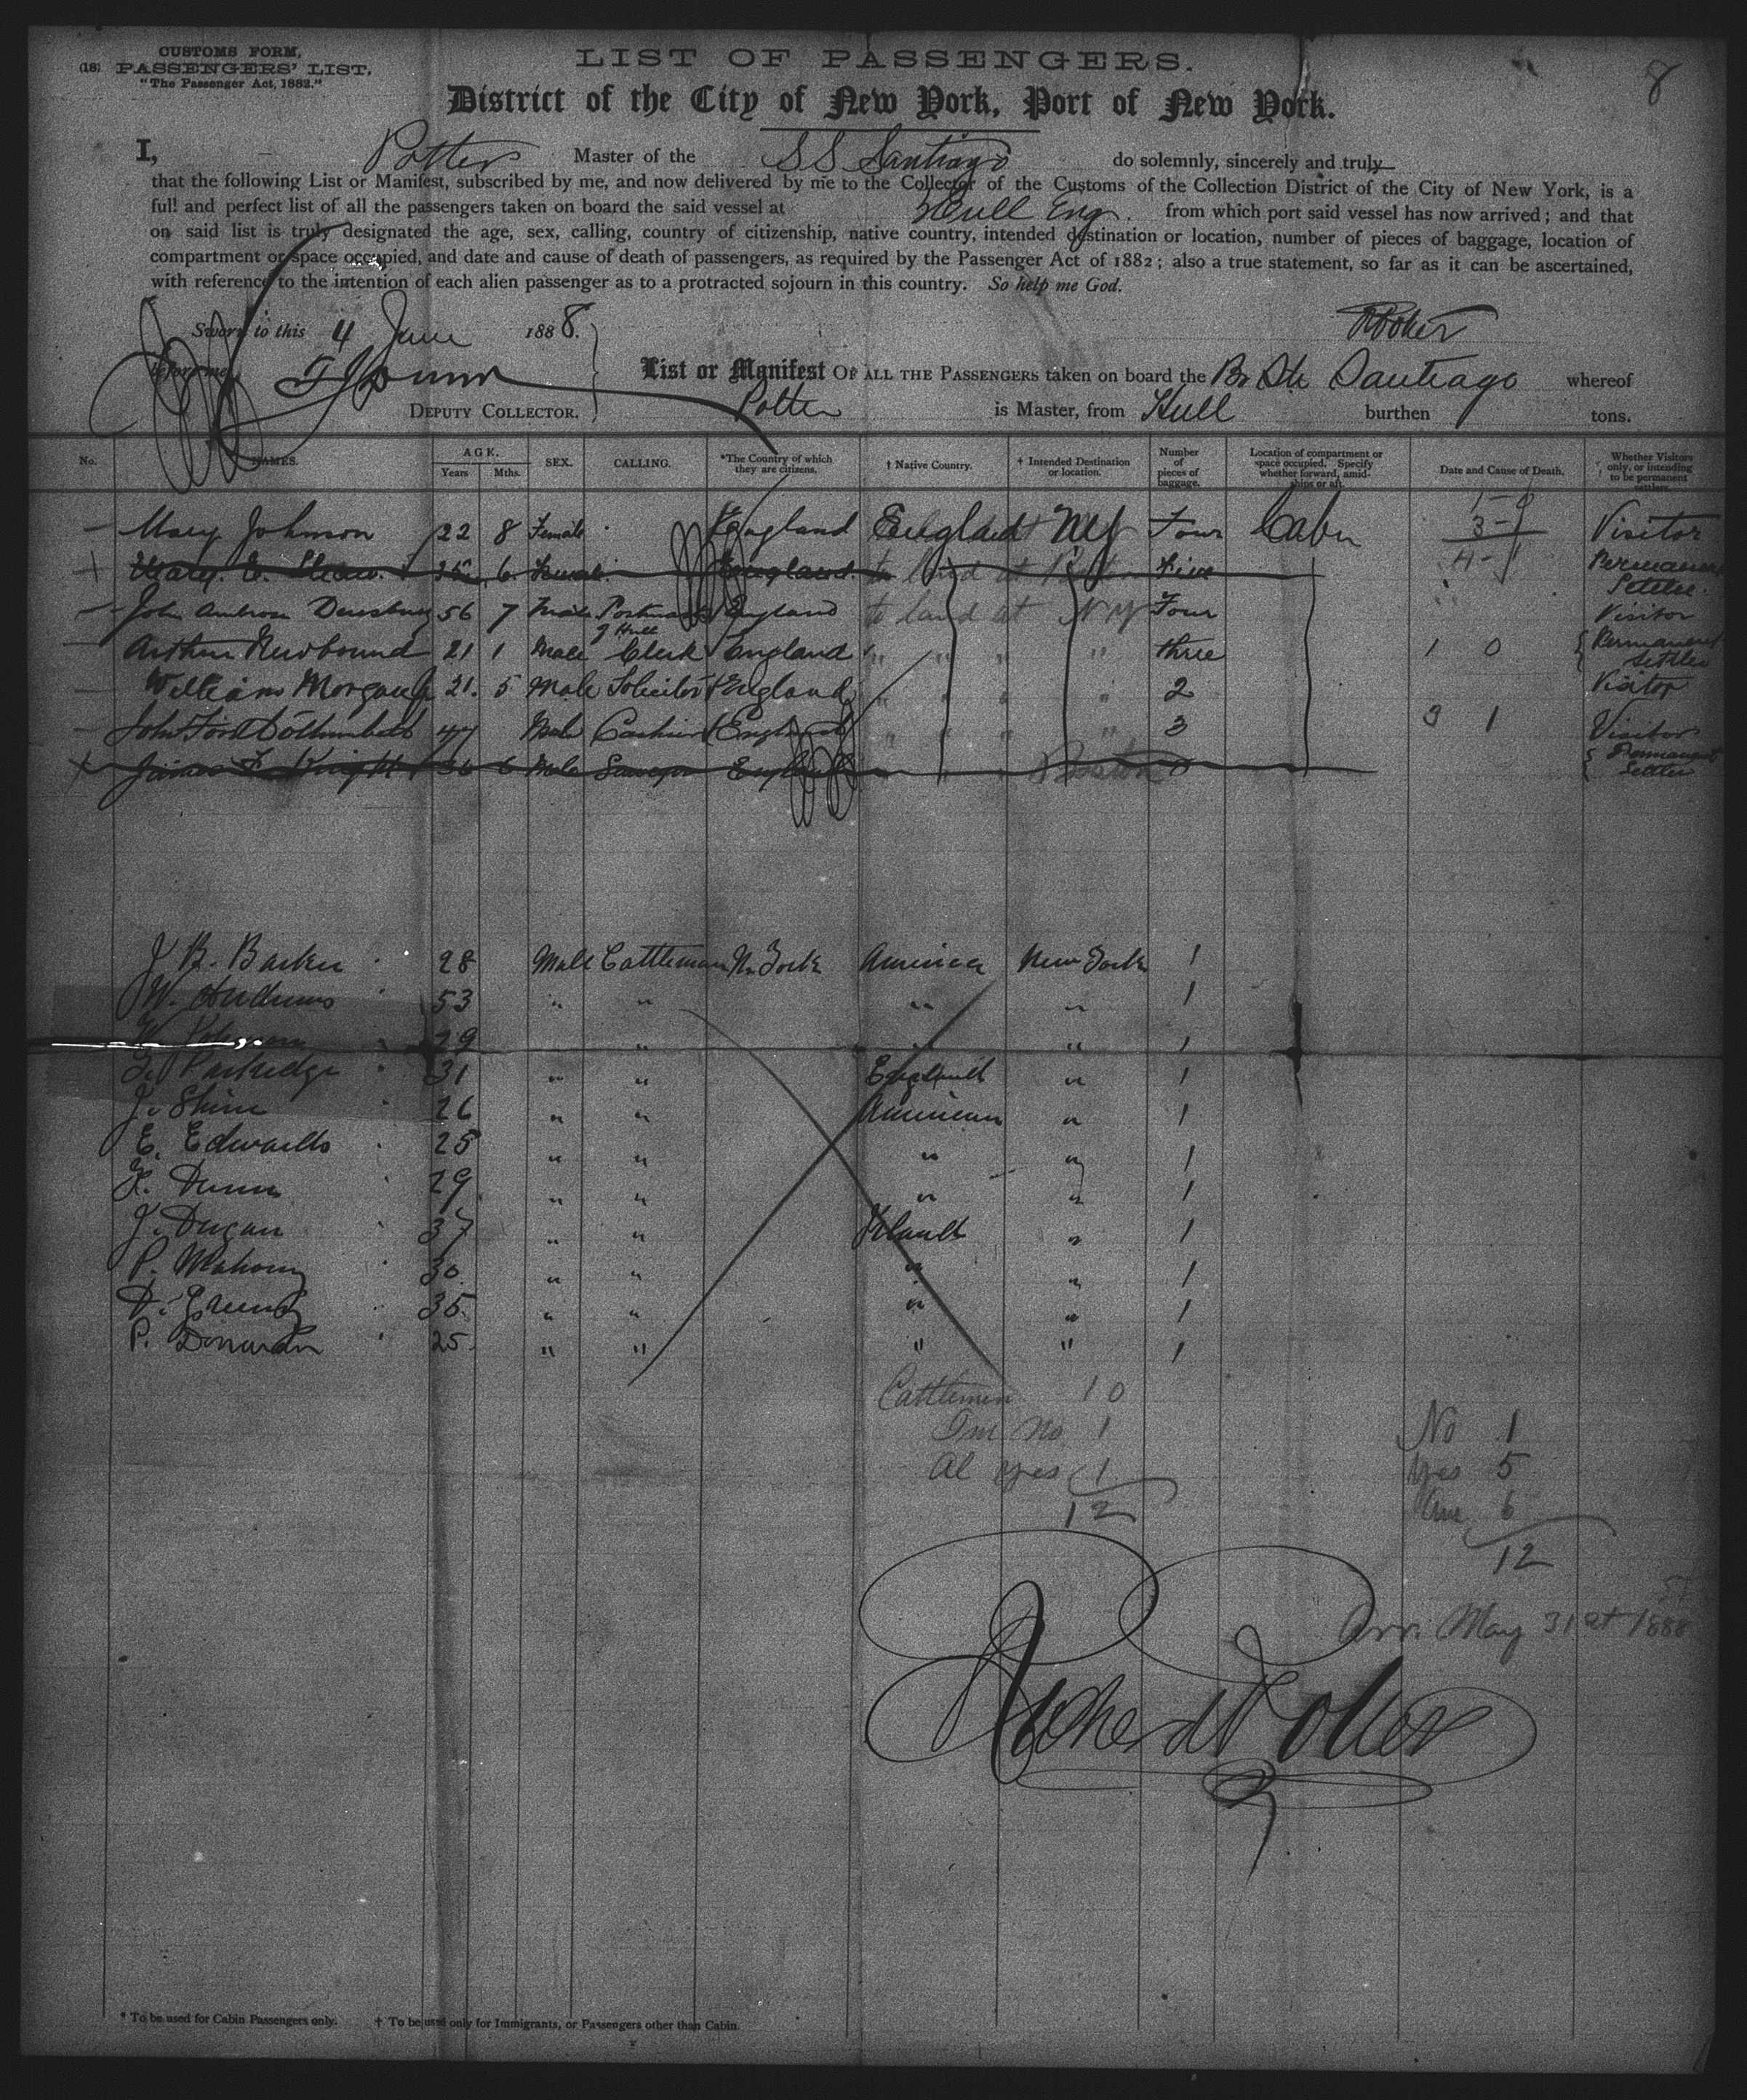 CUSTOMS FORM,
(18) PASSENGERS' LIST,
"The Passenger Act, 1882."
LIST OF PASSENGERS.
8
District of the City of New York, Port of New York.
I, Potter Master of the SS Santiago do solemnly, sincerely and truly
that the following List or Manifest, subscribed by me, and now delivered by me to the Collector of the Customs of the Collection District of the City of New York, is a
full and perfect list of all the passengers taken on board the said vessel at Hull Eng. from which port said vessel has now arrived; and that
on said list is truly designated the age, sex, calling, country of citizenship, native country, intended destination or location, number of pieces of baggage, location of
compartment or space occupied, and date and cause of death of passengers, as required by the Passenger Act of 1882; also a true statement, so far as it can be ascertained,
with reference to the intention of each alien passenger as to a protracted sojourn in this country. So help me God.
Sworn to this 4 June 1888.
before me
List or Manifest OF ALL THE PASSENGERS taken on board the Br Str Santiago whereof
DEPUTY COLLECTOR. Potter is Master, from Hull burthen tons.
No. NAMES. AGE. Years Mths. SEX. CALLING. *The Country of which they are citizens. † Native Country. † Intended Destination or location. Number of pieces of baggage. Location of compartment or space occupied. Specify whether forward, amidships or aft. Date and Cause of Death. Whether Visitors only, or intending to be permanent settlers.
Mary Johnson 22 8 Female England England NY Four Cabin Visitor
Mary. E. 6 Female England to land at Five Permanent Settler
John Ambrose 56 7 Male England to land at NY Four Visitor
of Hull
Arthur Newbound 21 1 Male Clerk England " " " three 1 0 Permanent Settler
William Morgan 21. 5 Male Solicitor England " " " 2 Visitor
John 47 Male Cashier England " " " 3 3 1 Visitor
James F. Knight 36 6 Male England " " Boston Permanent Settler
J B. Barker 28 Male Cattleman N. York America New York 1
W. Andrews 53 " " " " 1
W. 29 " " " 1
Partridge 31 " " England " 1
J. Shine 26 " " American " 1
E. Edwards 25 " " " " 1
Dunn 29 " " " " 1
J. Dugan 37 " " Irland " 1
P. Mahony 30 " " " " 1
35 " " " " 1
P. Donovan 25 " " " " 1
Cattlemen 10
No 1 No 1
Al yes 1 Yes 5
12 6
12
Arr. May 31st 1888
Richard Potter
* To be used for Cabin Passengers only. † To be used only for Immigrants, or Passengers other than Cabin.